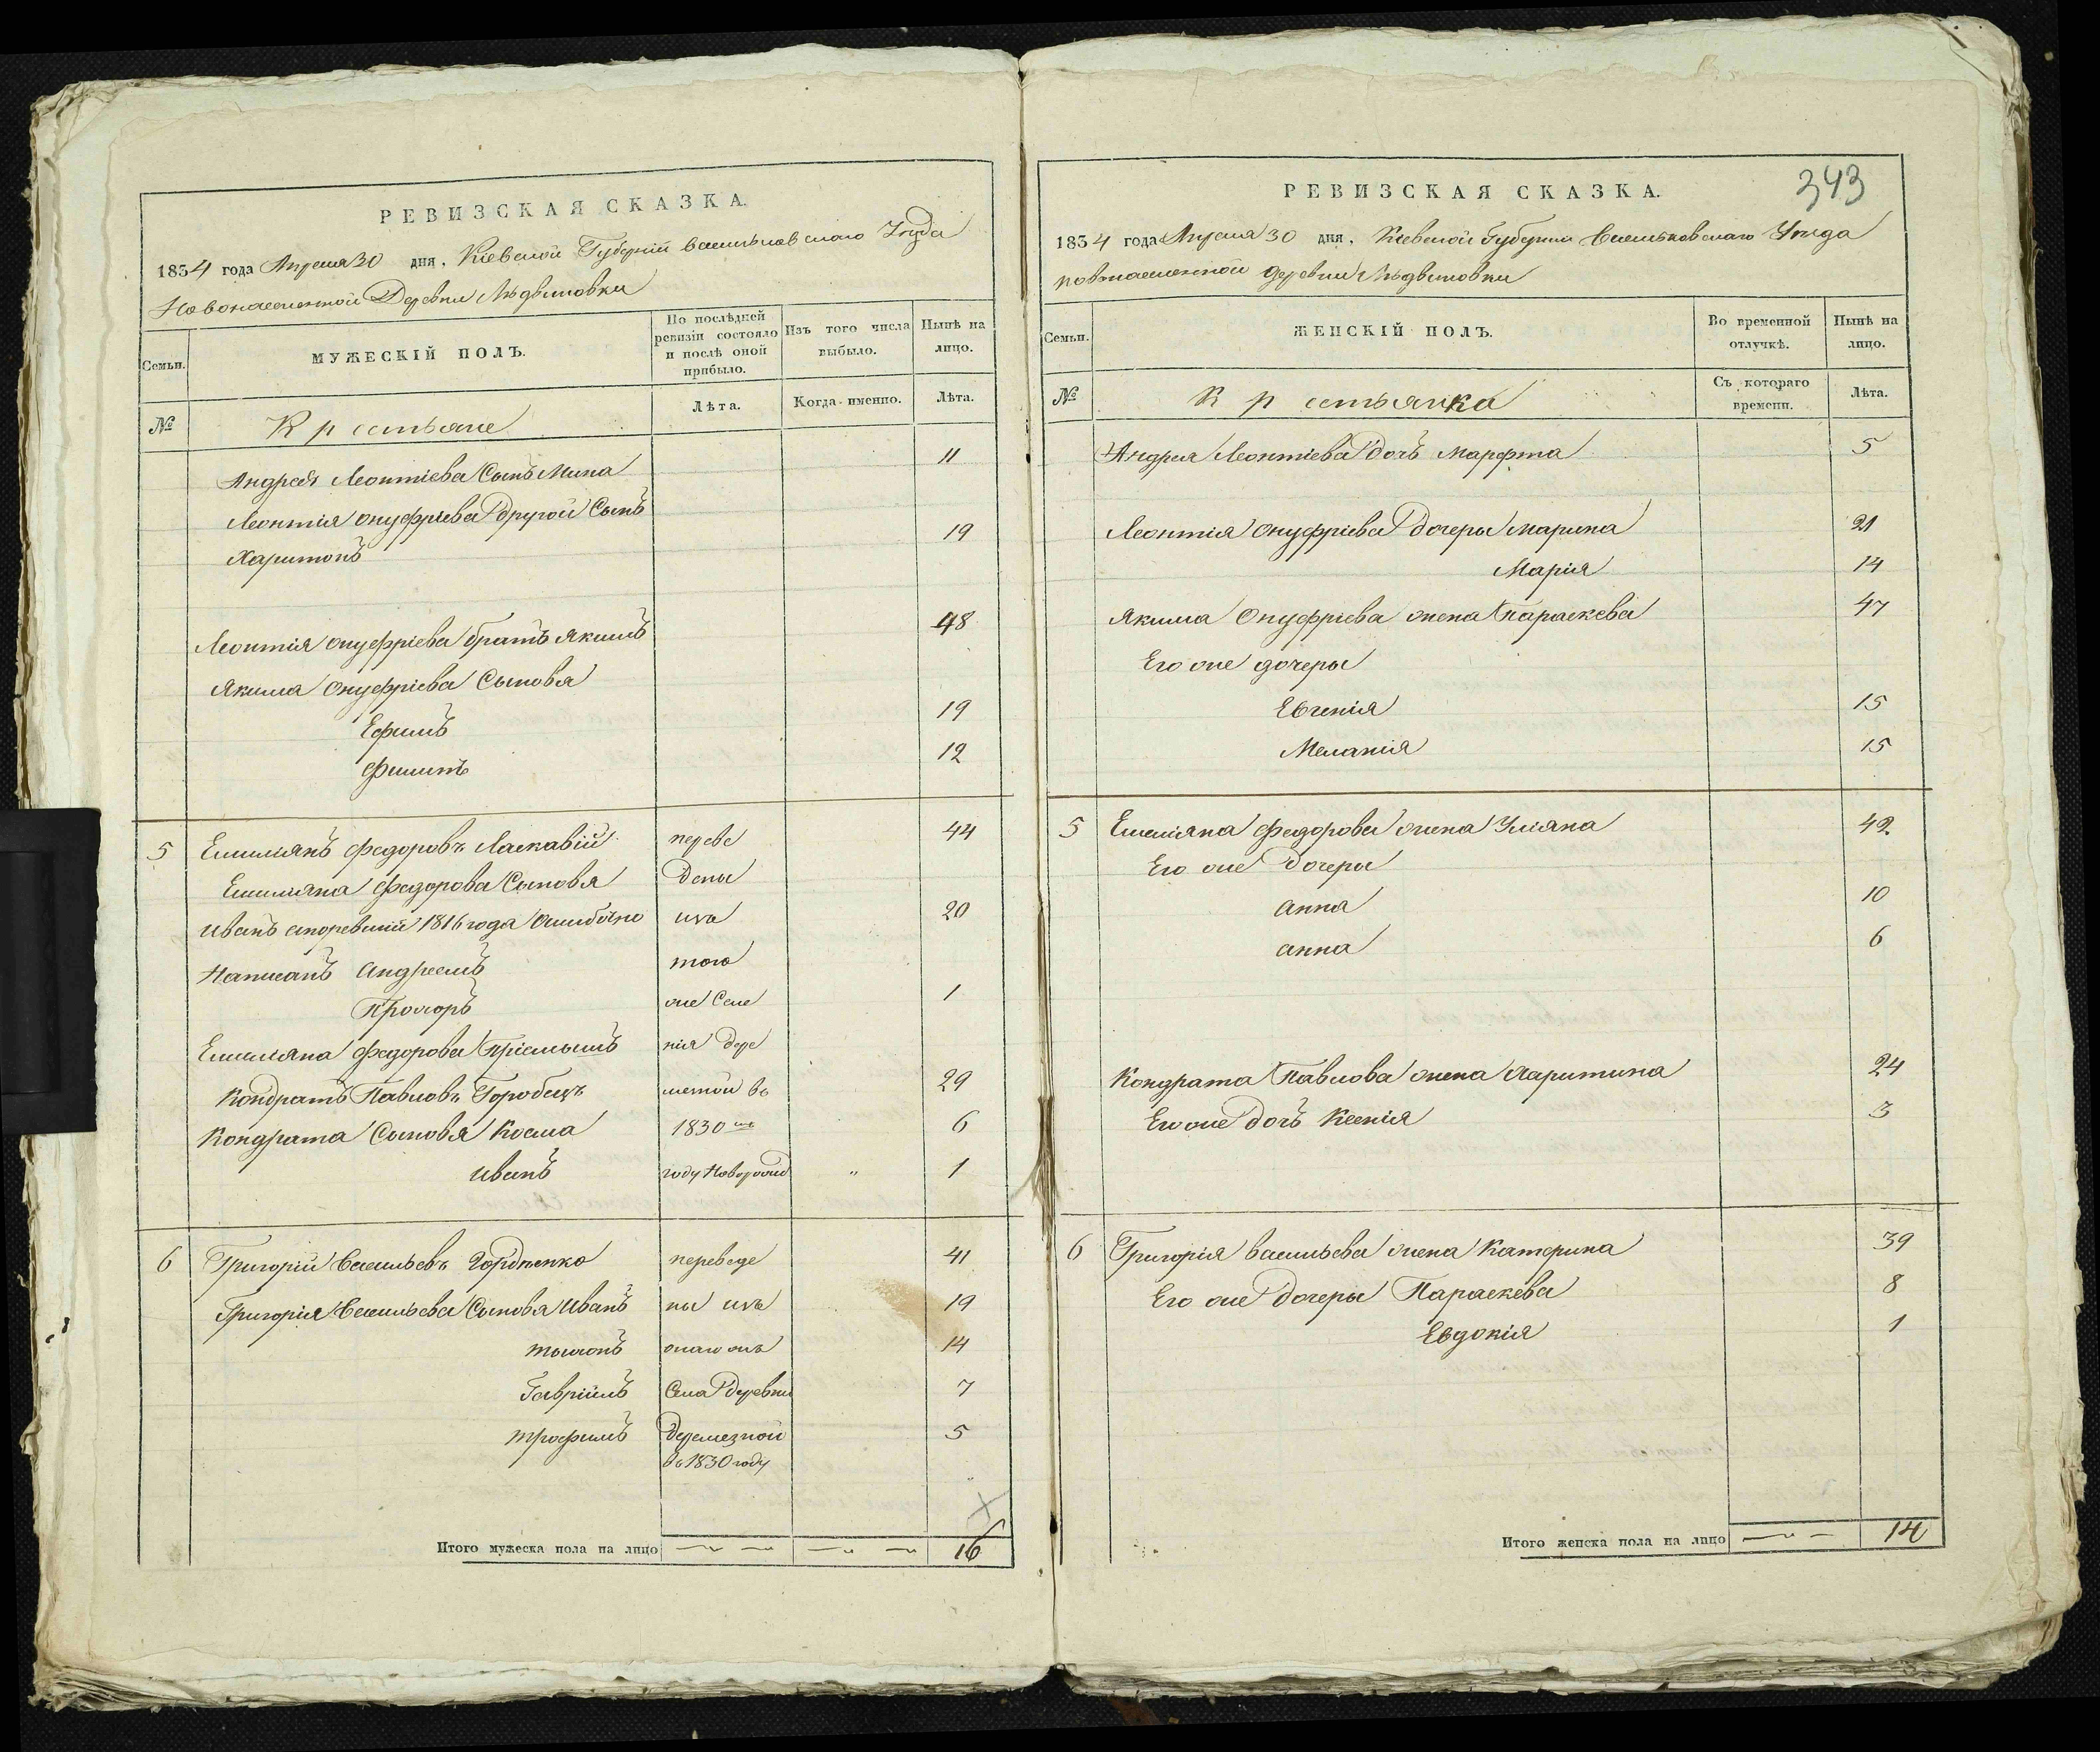 РЕВИЗСКАЯ СКАЗКА.
1834 года Апреля 30 дня. Кіевской Губерніи Васильковскаго Уезда
Новонаселенной Деревни
Семьи.
МУЖЕСКІЙ ПОЛЪ.
По послѣдней ревизіи состояло и послѣ оной прибыло.
Изъ того числа выбыло.
Нынѣ на лицо.
№
Крестьяне
Лѣта.
Когда именно.
Лѣта.
Андрея Леонтіева Сынъ Мина 11
Леонтія Онуфріева другой Сынъ
Харитонъ 19
Леонтія Онуфріева братъ Якимъ 48
Якима Онуфріева Сыновя
Ефимъ 19
Филипъ 12
5 Емиліянъ Федоровъ Ласкавій переве 44
Емиліяна Федорова Сыновя дены
Иванъ споревизіи 1816 года ошибочно изъ 20
Написанъ Андреемъ того
Прохоръ же Селе 1
Емиліяна Федорова Пріемышъ нія Дере
Кондратъ Павловъ Горобецъ мезной въ 29
Кондрата Сыновя Косма 1830 мъ 6
Иванъ году Новорожд " 1
6 Григорій Васильевъ Гордіенко переведе 41
Григорія Васильева Сыновя Иванъ ны изъ 19
Тихонъ 14
Гавріилъ Села Деревни 7
Трофимъ Деремезной 5
въ 1830 году
Итого мужеска пола на лицо 16
РЕВИЗСКАЯ СКАЗКА.
343
1834 года Апреля 30 дня. Кіевской Губерніи Васильковскаго Уезда
новонаселенной деревни
Семьи.
ЖЕНСКІЙ ПОЛЪ.
Во временной отлучкѣ.
Нынѣ на лицо.
№
Крестьянка
Съ котораго времени.
Лѣта.
Андрея Леонтіева дочъ Марфта 5
Леонтія Онуфріева дочеры Марина 21
Марія 14
Якима Онуфріева жена Параскева 47
Его же дочеры
Евгенія 15
Меланія 15
5 Емиліяна Федорова жена Уліяна 42
Его же Дочеры
Анна 10
Анна 6
Кондрата Павлова жена Харитина 24
Его же Дочъ Ксенія 3
6 Григорія Васильева жена Катерина 39
Его же Дочеры Параскева 8
Евдокія 1
Итого женска пола на лицо 14